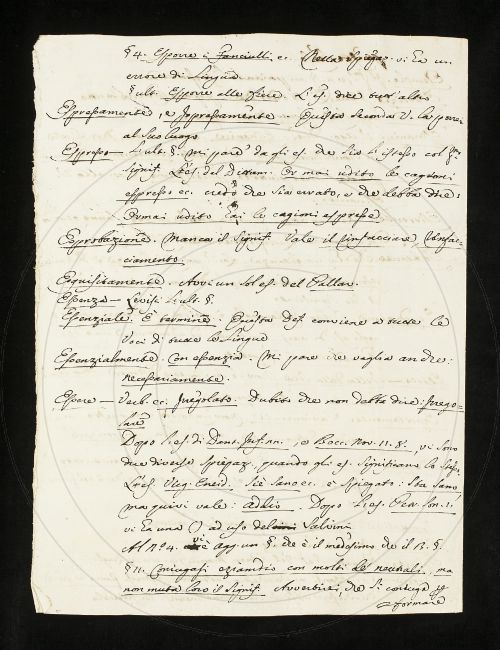 § 4. Esporre i Fanciulli ec. Nella spiegaz. vi ha un
errore di Lingua
§ ult. Esporre alle fiere. L'es. dice tutt'altro
Espressamente, e Jspressamente. Questa seconda V. la porrei
al suo luogo
Espresso — L. ult. §. mi pare da gli es. che sia l'istesso col pr.
signif. L'es. del Dittam. Or mai udito le cagioni
espresso ec. credo che sia errato, e che debba dire:
Ormai udito hai le cagioni espresse
Esprobazione. Manca il signif. Vale il Rinfacciare, Rinfac-
ciamento.
Esquisitamente. Avvi un sol es. del Pallav.
Essenza — Levisi l'ult. §.
Essenziale. È termine. Questa def. conviene a tutte le
Voci di tutte le Lingue
Essenzialmente. Con essenzia. Mi pare che vaglia anche:
necessariamente.
Essere — Verb. ec. Jrregolato. Dubito che non debba dire Jrrego-
lare
Dopo l'es. di Dant. Inf. , e Bocc. Nov. 11. 8., vi sono
due diverse spiegaz., quando gli es. significano lo stesso.
L'es. Virg. Eneid. Siè sano ec. è spiegato: Sta sano
ma quivi vale: addio. Dopo l'es. Petr. Son. 1.
vi ha una () ad uso del Salvini
Al N° 4. vi è agg. un §. che è il medesimo che il R. §.
§ 11. Coniugasi eziandio con molti de' neutrali, ma
non muta loro il signif. Avverbisi, che si coniuga p
formare